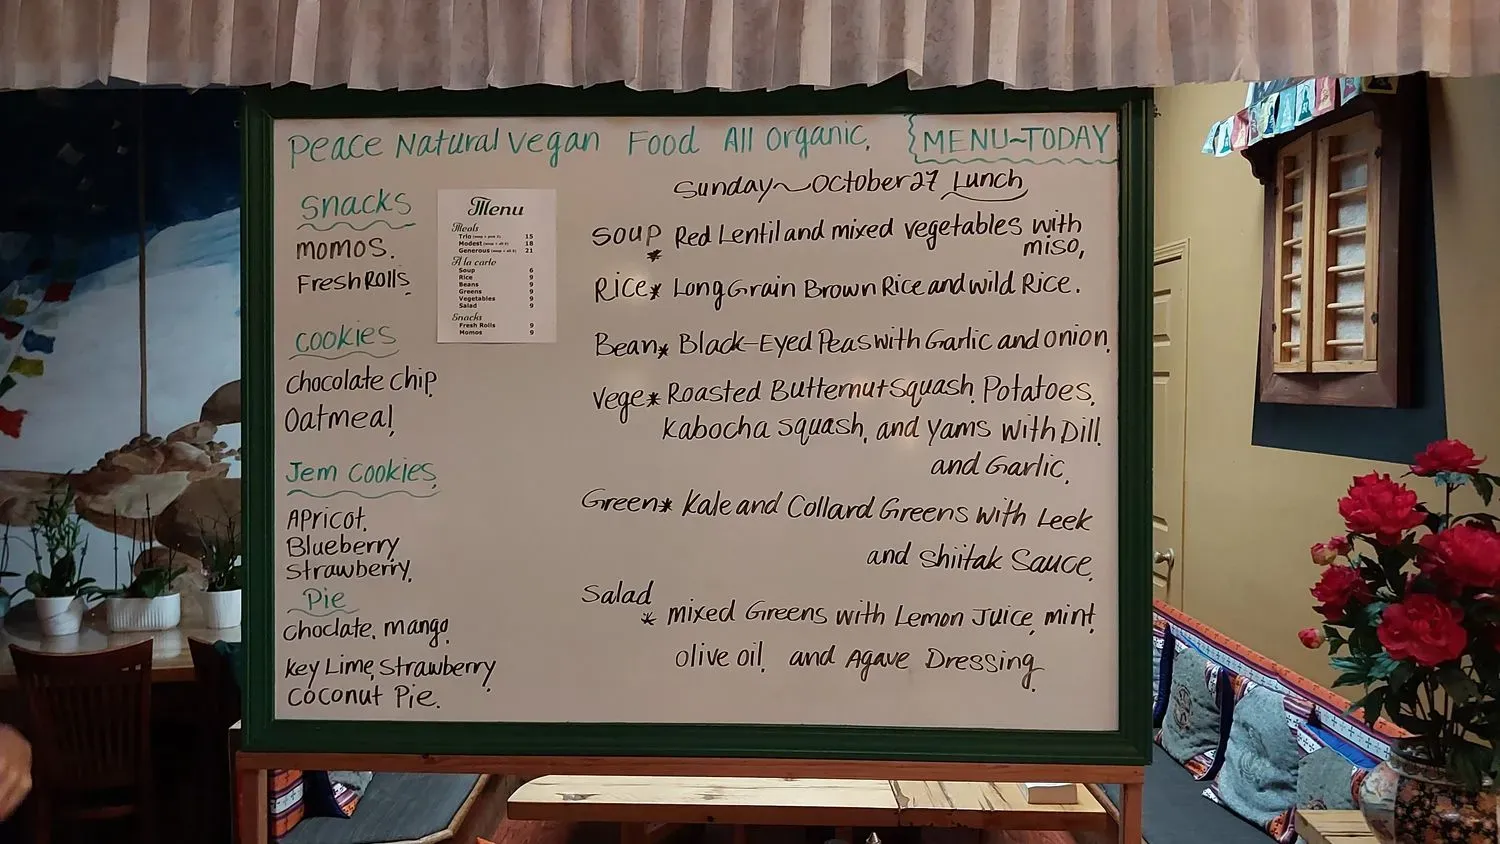 Peace Natural Vegan Food All Organic. {MENU~TODAY
Sunday~October 27 Lunch
Snacks
momos.
Fresh Rolls
cookies
chocolate chip
Oatmeal
Jem cookies
Apricot,
Blueberry
Strawberry,
Pie
choclate, mango,
Key Lime, Strawberry
coconut Pie.
Menu
Meals
Trio (soup + pick 2) 15
Modest 18
Generous 21
A la carte
Soup 6
Rice 9
Beans 9
Greens 9
Vegetables 9
Salad 9
Snacks
Fresh Rolls 9
Momos 9
Soup * Red Lentil and mixed vegetables with
miso,
Rice * Long Grain Brown Rice and wild Rice.
Bean * Black-Eyed Peas with Garlic and onion.
Vege * Roasted Butternut Squash, Potatoes,
Kabocha squash, and yams with Dill
and Garlic.
Green * Kale and Collard Greens with Leek
and Shiitak Sauce.
Salad
* mixed Greens with Lemon Juice, mint,
olive oil, and Agave Dressing.